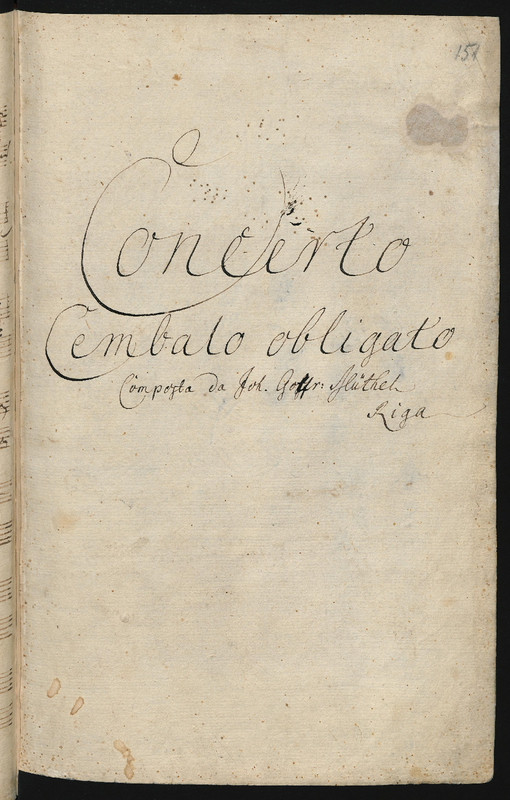 151
Concerto
Cembalo obligato
Composta da Joh. Gottfr: Müthel
Riga